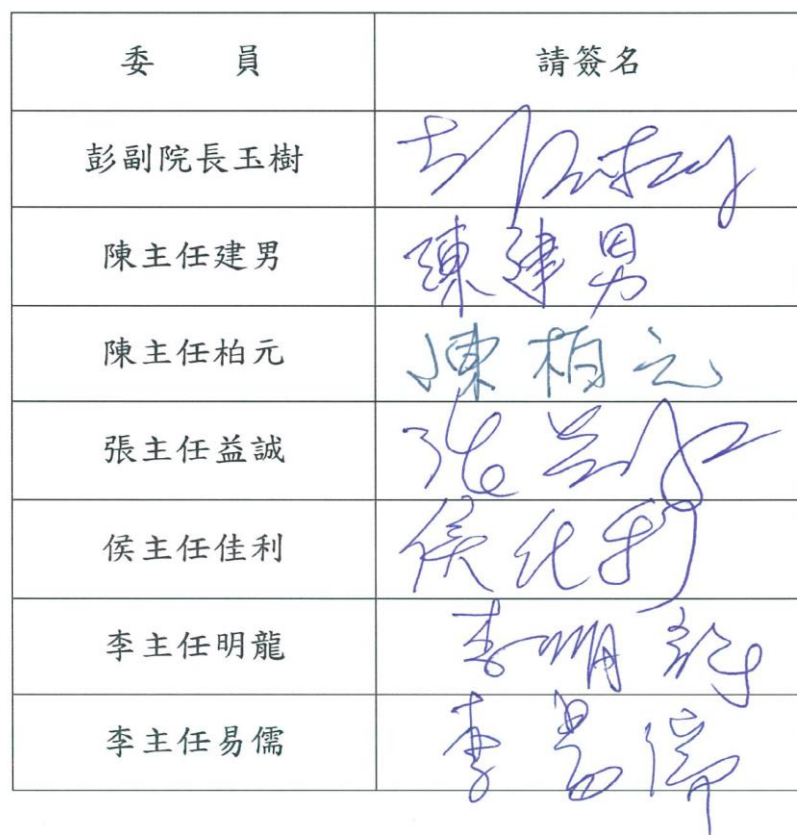 委 員 請簽名
彭副院長玉樹
陳主任建男 陳建男
陳主任柏元 陳柏元
張主任益誠
侯主任佳利 侯佳利
李主任明龍 李明龍
李主任易儒 李易儒